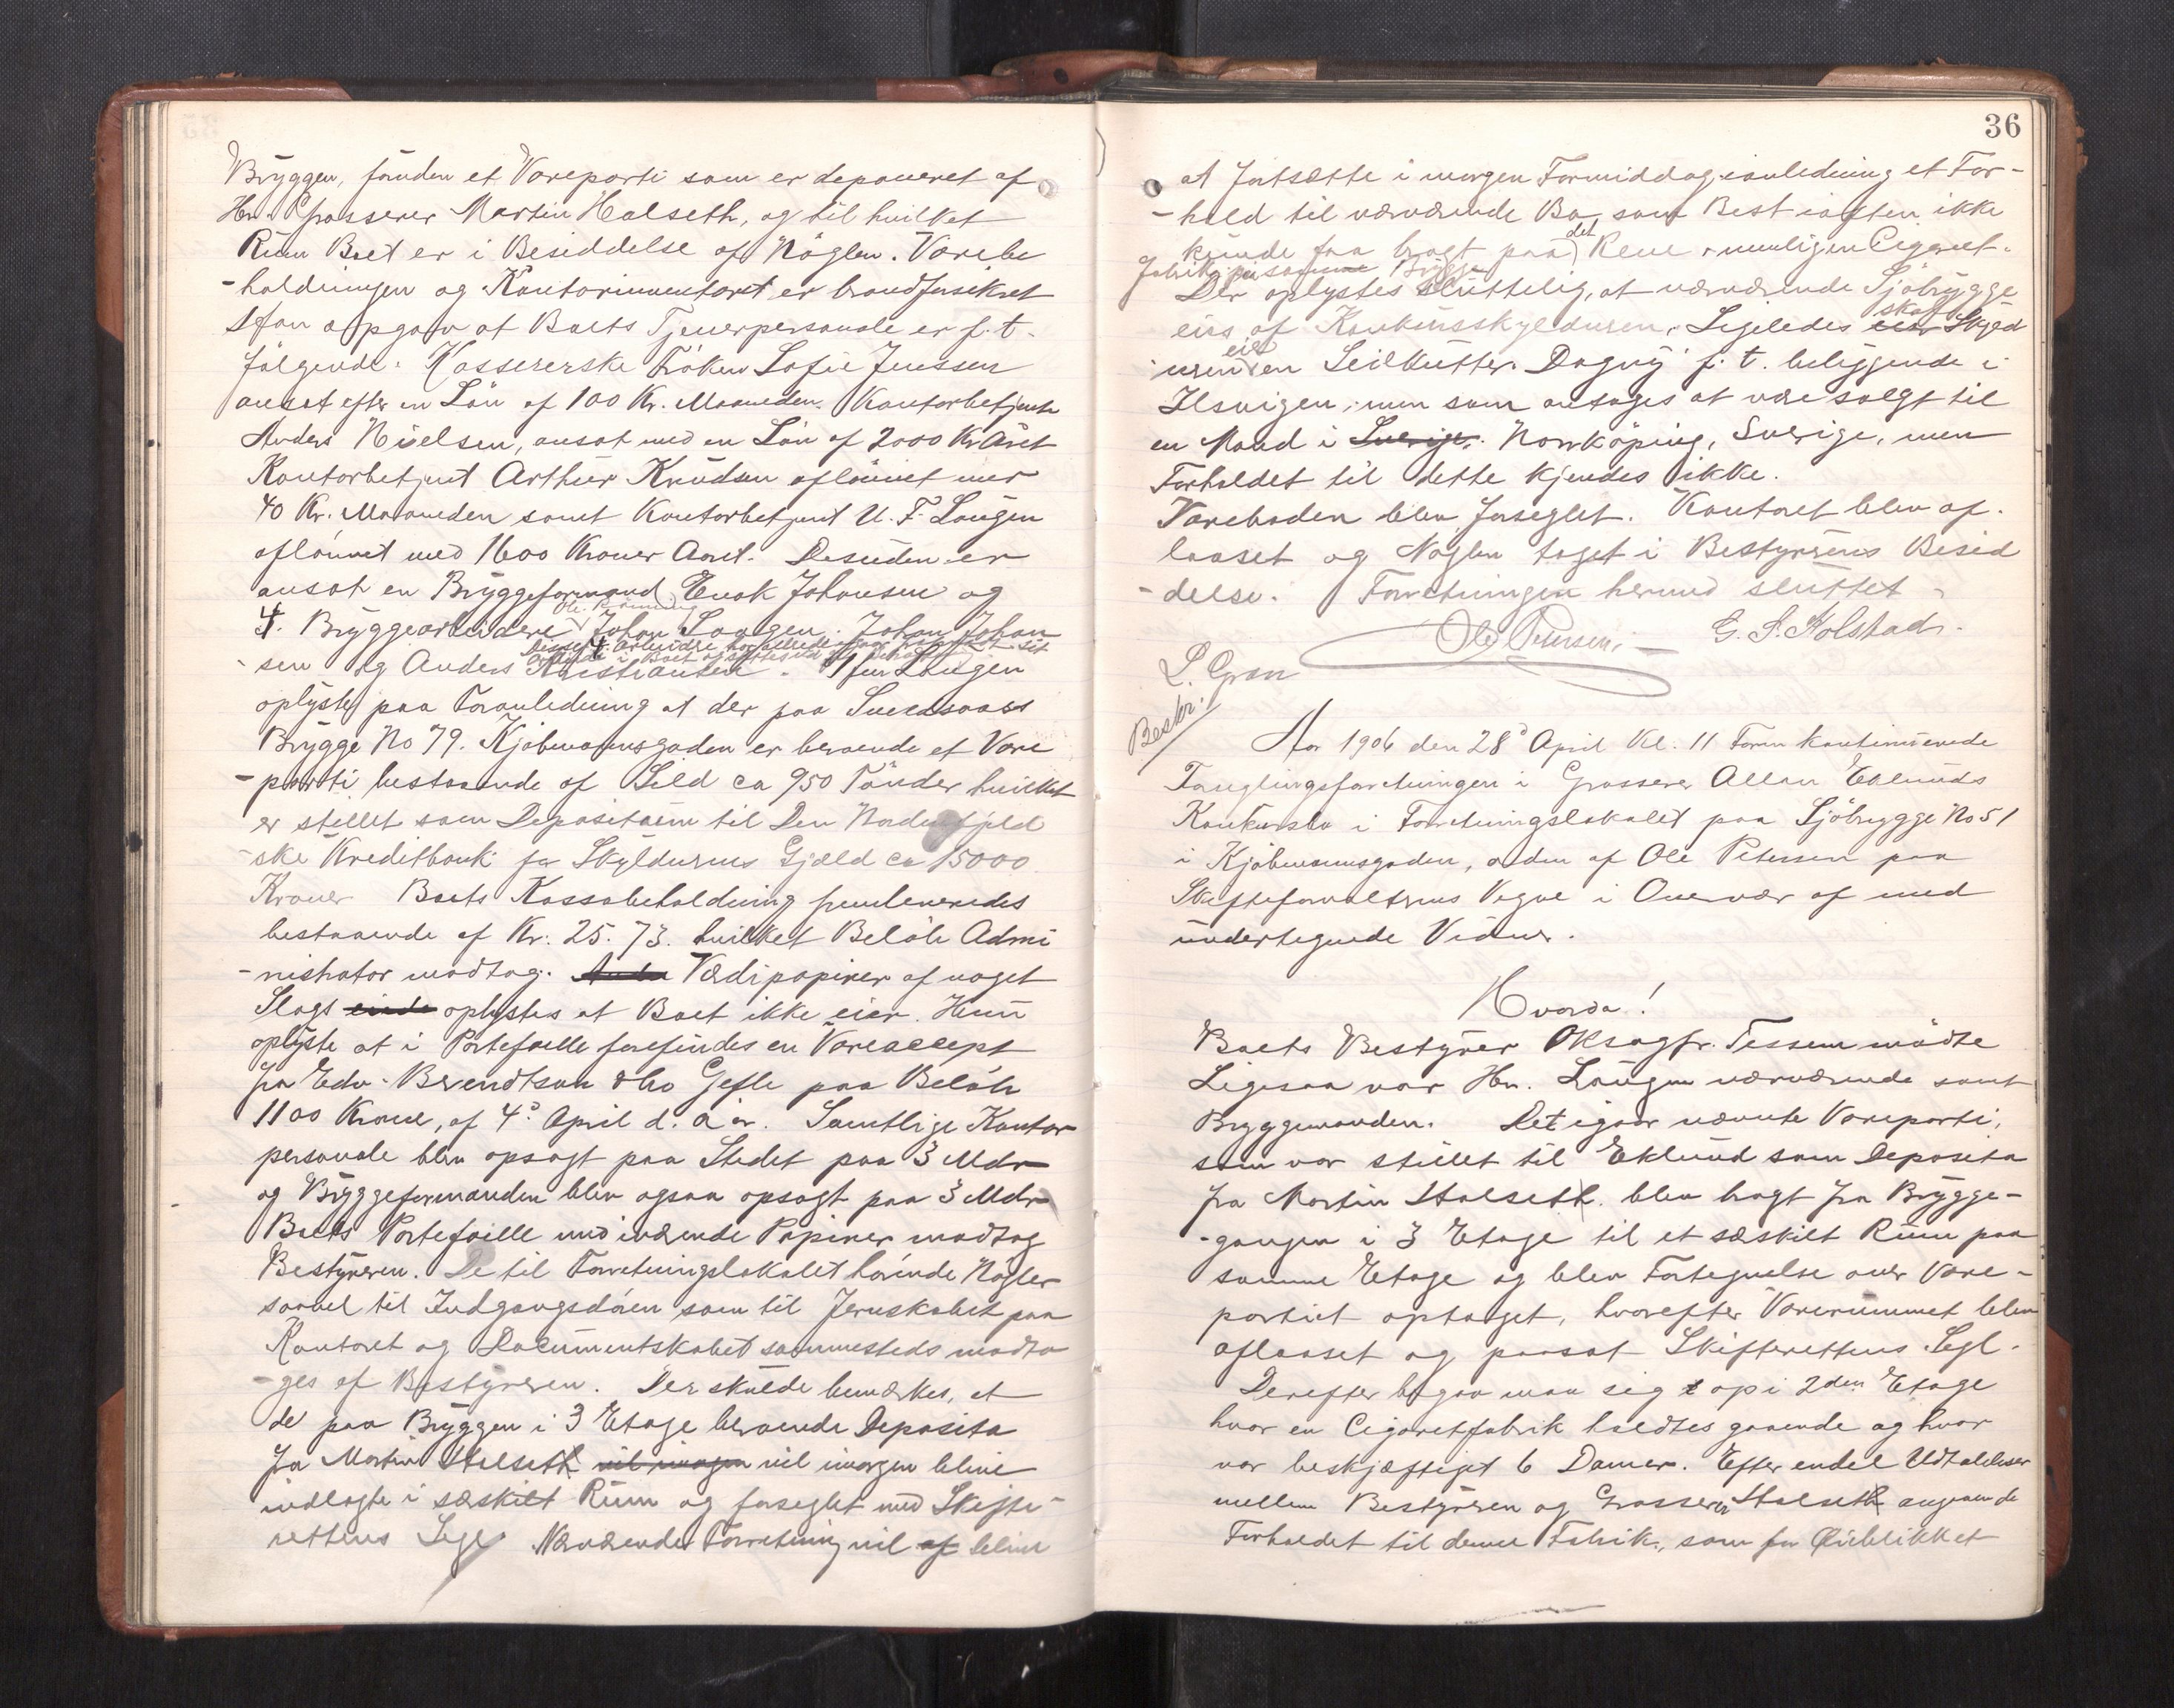 Bryggen, fanden et Vareparti som er deponeret af
Hr. Grosserer Martin Halseth, og til hvilket
Rum Boet er i Besiddelse af Nøglen. Varebe
-holdningen og Kontorinventaret er brandforsikret
Man opgav at Boets Tjenerpersonale er f. t.
følgende: Kassererske Frøken Sofie Jenssen
ansat efter en Løn af 100 Kr. Maaneden. Kontorbetjent
Anders Nielsen, ansat med en Løn af 2000 Kr Aaret
Kontorbetjent Arthur Knudsen aflønnet med
40 Kr. Maaneden samt Kontorbetjent U. F. Laugen
aflønnet med 1600 Kroner Aaret. Desuden er
ansat en Bryggeformand Enok Johansen og
4. Bryggearbeidere Johan Laugen. Johan Johan
Disse 4 Arbeidere
-sen og Anders Kristiansen. Laugen
oplyste paa Foranledning at der paa Svendsaas
Brygge No 79. Kjøbmannsgaden er beroende et Vare
-parti bestaaende af Sild ca 950 Tønder hvilket
er stillet som Depositum til Den Nordenfjeld
-ske Kreditbank for Skyldnerens Gjæld ca 15000
Kroner Boets Kassabeholdning fremleveredes
bestaaende af Kr. 25.73. hvilket Beløb Admi
-nistrator modtog. Værdipapirer af noget
Slags oplystes at Boet ikke eier. Hun
oplyste at i Portefoille forefindes en Vareaccept
fra Edv. Berendtson & Co Gefle paa Beløb
1100 Kroner, af 4d April d. aar. Samtlige Kontor
personale blev opsagt paa Stedet paa 3 Mdr
og Bryggeformanden blev ogsaa opsagt paa 3 Mdr
Boets Portefoille med iværende Papirer modtog
Bestyreren. De til Forretningslokalet hørende Nøgler
saavel til Indgangsdøren som til Jernskabet paa
Kontoret og Documentskabet sammesteds modto
-ges af Bestyreren. Der skulde bemærkes, at
de paa Bryggen i 3 Etage beroende Deposita
fra Martin Halseth vil imorgen vil imorgen blive
indlagte i særskilt Rum og forseglet med Skifte-
rettens Segl Nærværende Forretning vil af blive
36
at fortsætte i morgen Formiddag i anledning et For-
-hold til nærværende Bo, som Best iaften ikke
kunde faa bragt paa det Rene, nemligen Cigaret-
fabrik paa samme Brygge
Der oplystes sluttelig, at nærværende Sjøbrygge
eies af Konkursskyldneren. Ligeledes eier skal Skyld
-neren eie en Seilkutter Dagny f. t. beliggende i
Ilsvigen, men som antages at være solgt til
en Mand i Sverige. Norrköping, Sverige, men
Forholdet til dette kjendes ikke.
Vareboden blev forseglet. Kontoret blev af-
laaset og Nøglen taget i Bestyrerens Besid
-delse. Forretningen hermed sluttet.
Ole Petersen. G. S. Kolstad.
L. Gran
Bestr.
Aar 1906 den 28d April Kl. 11 Form kontinuerede
Forseglingsforretningen i Grosserer Allan Eklunds
Konkursbo i Forretningslokalet paa Sjøbrygge No 51
i Kjøbmannsgaden, adm af Ole Petersen paa
Skifteforvalterens Vegne i Overvær af med
undertegnede Vidner.
Hvorda!
Boets Bestyrer ORsagfr. Tessem mødte
Ligesaa var Hr. Laugen nærværende samt
Bryggemanden. Det igaar nævnte Vareparti,
som var stillet til Eklund som Deposita
fra Martin Halseth. blev bragt fra Brygge-
-gangen i 3 Etage til et særskilt Rum paa
samme Etage og blev Fortegnelse over Vare-
partiet optaget, hvorefter Varerummet blev
aflaaset og paasat Skifterettens Segl.
Derefter begav man sig op i 2den Etage
hvor en Cigaretfabrik holdtes gaaende og hvor
var beskjæftiget 6 Damer. Efter endel Udtalelser
mellem Bestyreren og Grosserer Halseth angaaende
Forholdet til denne Fabrik, som for Øieblikket